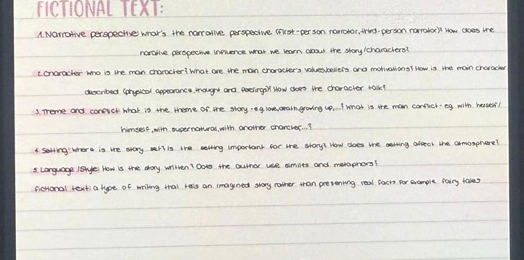 FICTIONAL TEXT:
1. Narrative perspective: what's the narrative perspective (first-person narrator, third-person narrator)? How does the
narrative perspective influence what we learn about the story/characters?
2. Character: who is the main character? What are the main character's values, beliefs and motivations? How is the main character
described (physical appearance, thought and feelings)? How does the character talk?
3. Theme and conflict: what is the theme of the story - e.g. love, death, growing up,...? What is the main conflict - eg. with herself/
himself, with supernatural, with another character...?
4. Setting: where is the story set? Is the setting important for the story? How does the setting affect the atmosphere?
5. Language/Style: How is the story written? Does the author use similes and metaphors?
fictional text: a type of writing that tells an imagined story rather than presenting real facts for example fairy tales